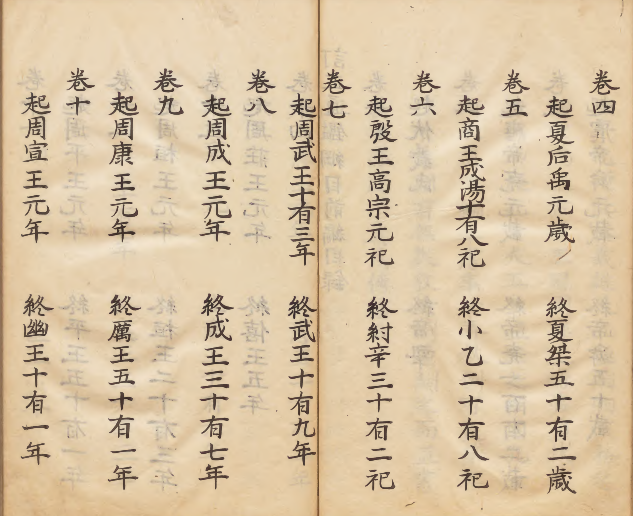 卷四
起夏后禹元歲　終夏桀五十有二歲
卷五
起商王成湯十有八祀　終小乙二十有八祀
卷六
起殷王高宗元祀　終紂辛三十有二祀
卷七
起周武王十有三年　終武王十有九年
卷八
起周成王元年　終成王三十有七年
卷九
起周康王元年　終厲王五十有一年
卷十
起周宣王元年　終幽王十有一年